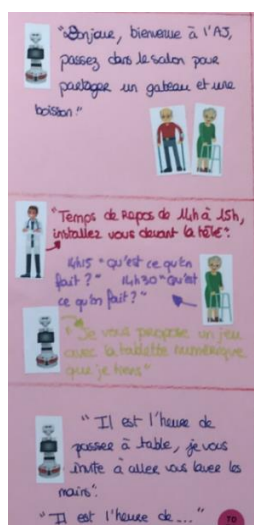 "Bonjour, bienvenue à l'AJ,
passez dans le salon pour
partager un gateau et une
boisson"
"Temps de Repos de 14h à 15h,
installez vous devant la télé".
14h15 "qu'est ce qu'on
fait ?" 14h30 "Qu'est
ce qu'on fait ?"
"Je vous propose un jeu
avec la tablette numérique
que je tiens"
"Il est l'heure de
passer à table, je vous
invite à aller vous laver les
mains".
"Il est l'heure de ..."